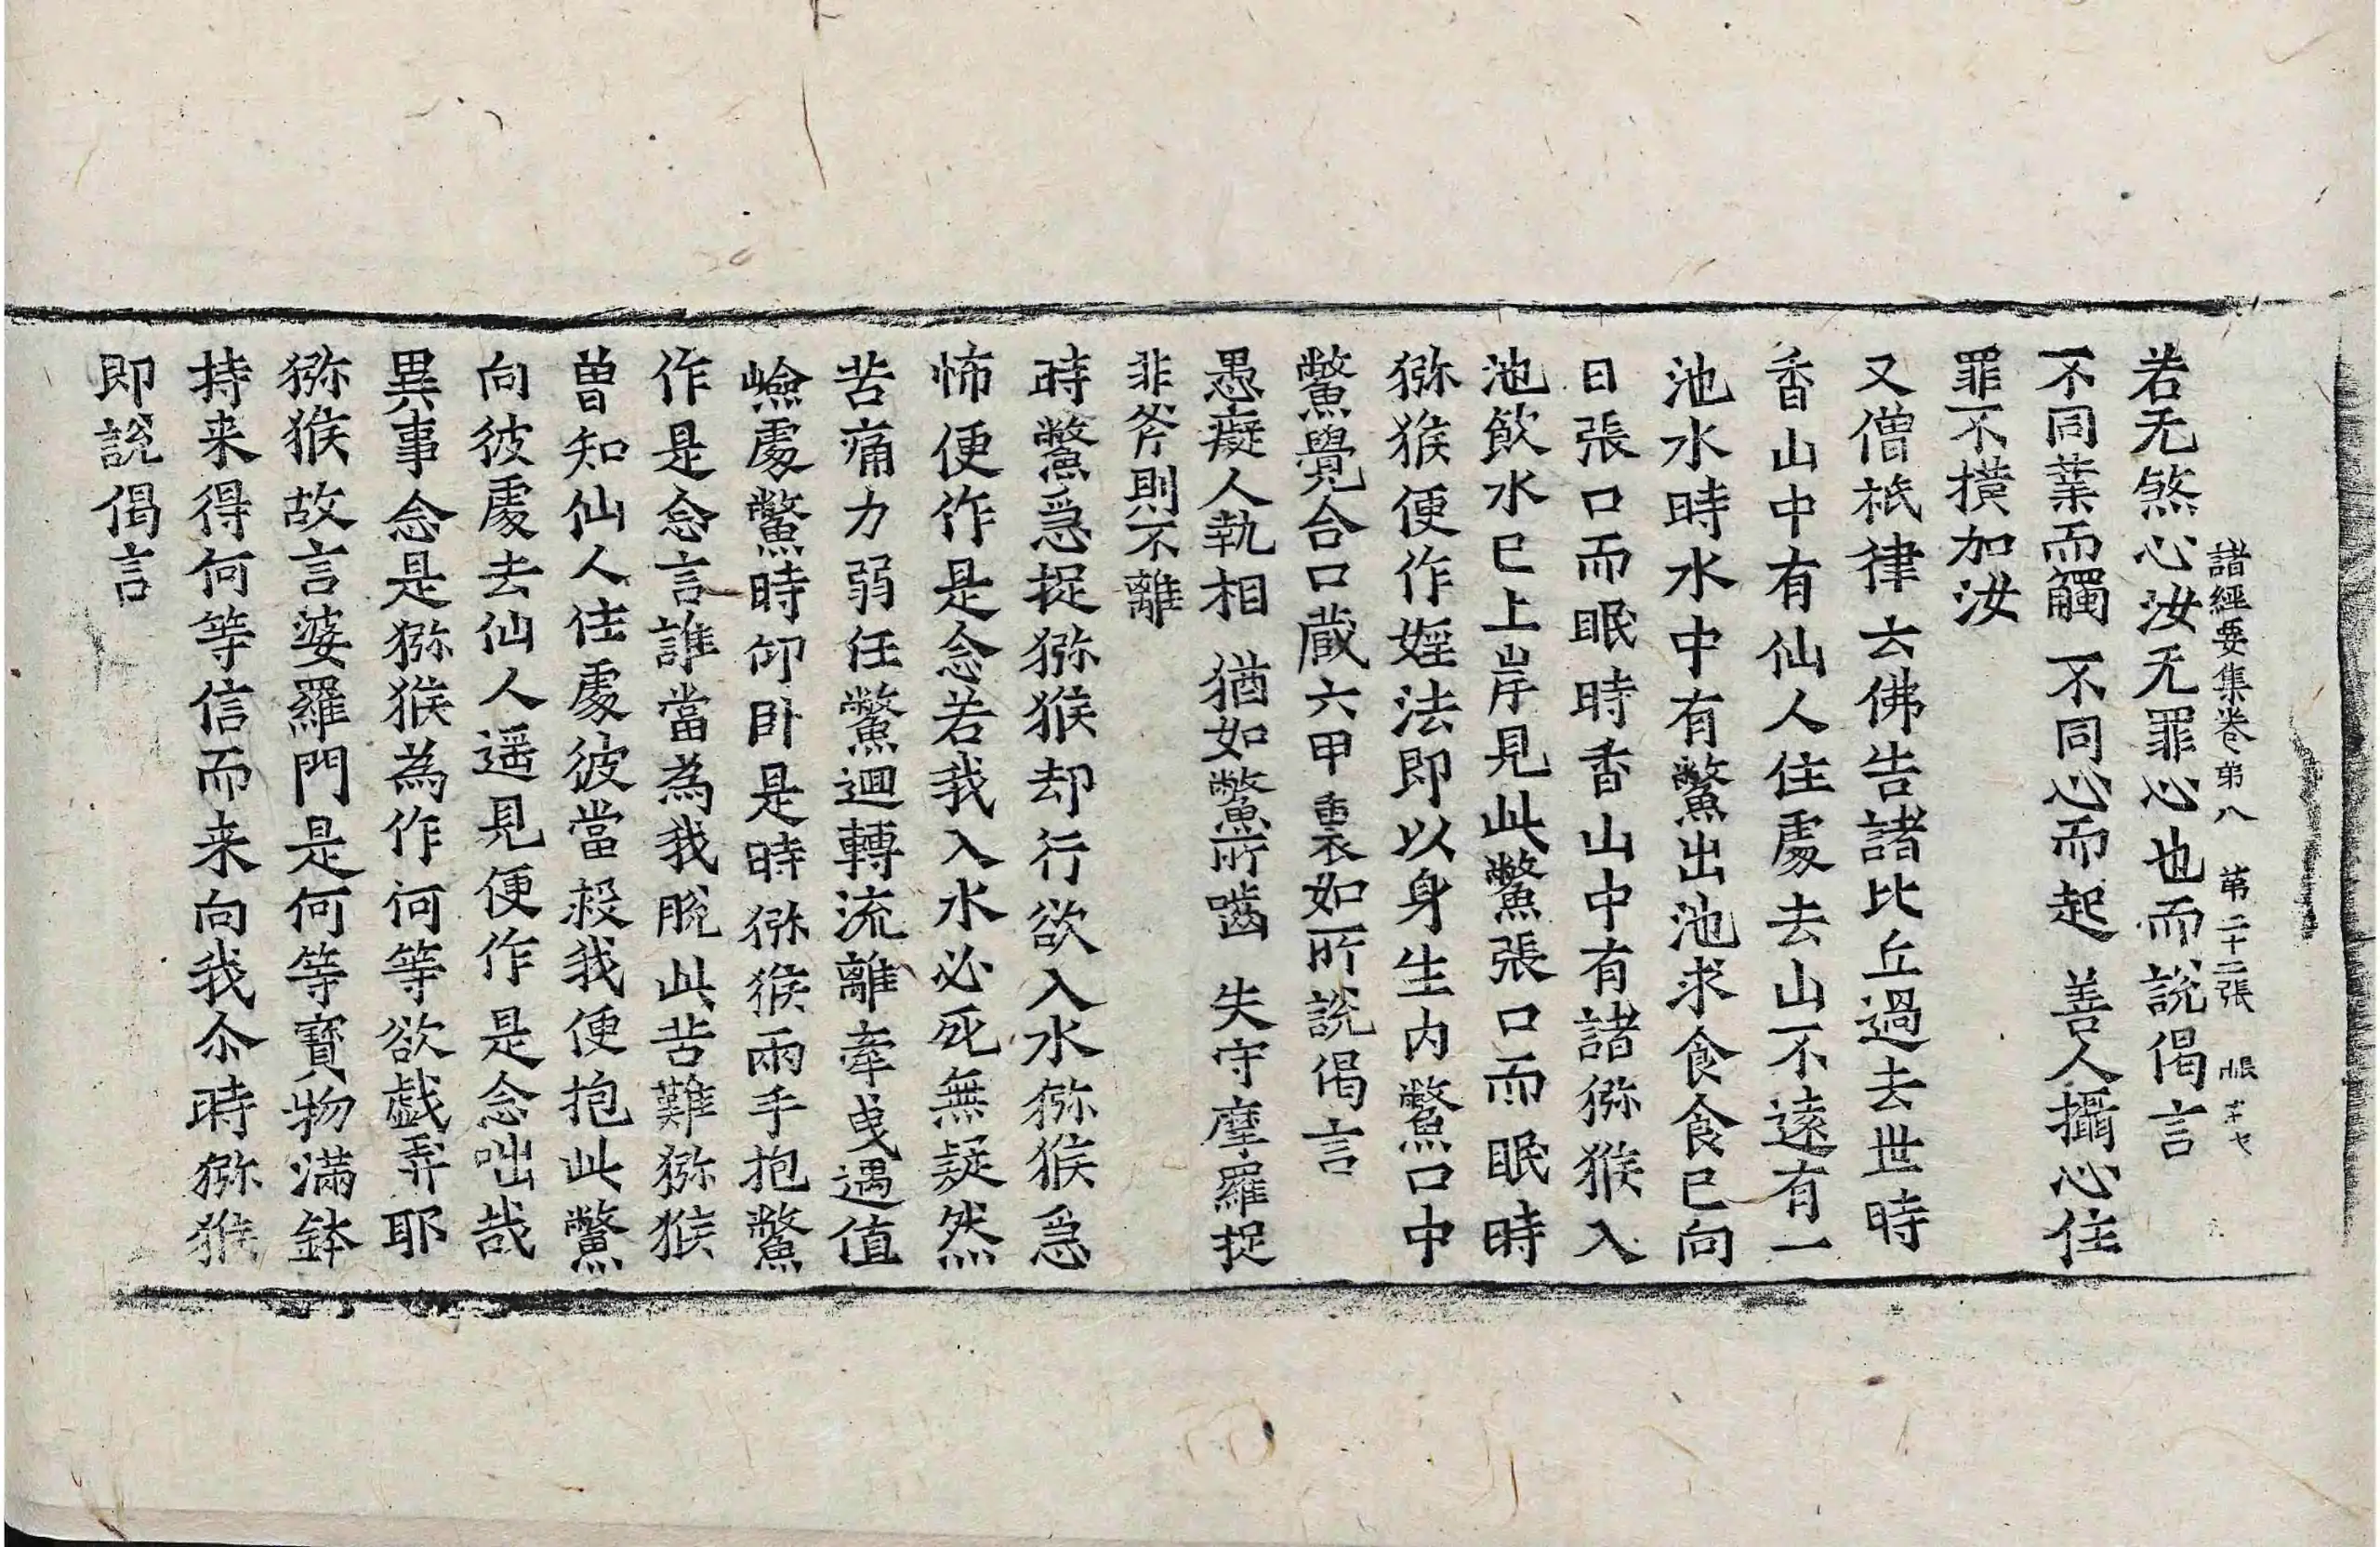 諸經要集卷第八 第二十二張
若无煞心汝无罪心也而說偈言
不同葉而觸 不同心而起 善人攝心住
罪不撗加汝
又僧祇律云佛告諸比丘過去世時
香山中有仙人住處去山不遠有一
池水時水中有鱉出池求食食已向
日張口而眠時香山中有諸猕猴入
池飲水已上岸見此鱉張口而眠時
猕猴便作婬法即以身生内鱉口中
鱉覺合口蔵六甲裏如所說偈言
愚癡人執相 猶如鱉所嚙 失守摩羅捉
非斧則不離
時鱉急捉猕猴却行欲入水猕猴急
怖便作是念若我入水必死無疑然
苦痛力弱任鱉迴轉流離牽曳遇值
嶮處鱉時仰卧是時猕猴兩手抱鱉
作是念言誰當為我脫此苦難猕猴
曾知仙人住處彼當殺我便抱此鱉
向彼處去仙人遥見便作是念咄哉
異事念是猕猴為作何等欲戯弄耶
猕猴故言婆羅門是何等寳物滿鉢
持来得何等信而来向我尒時猕猴
即說偈言